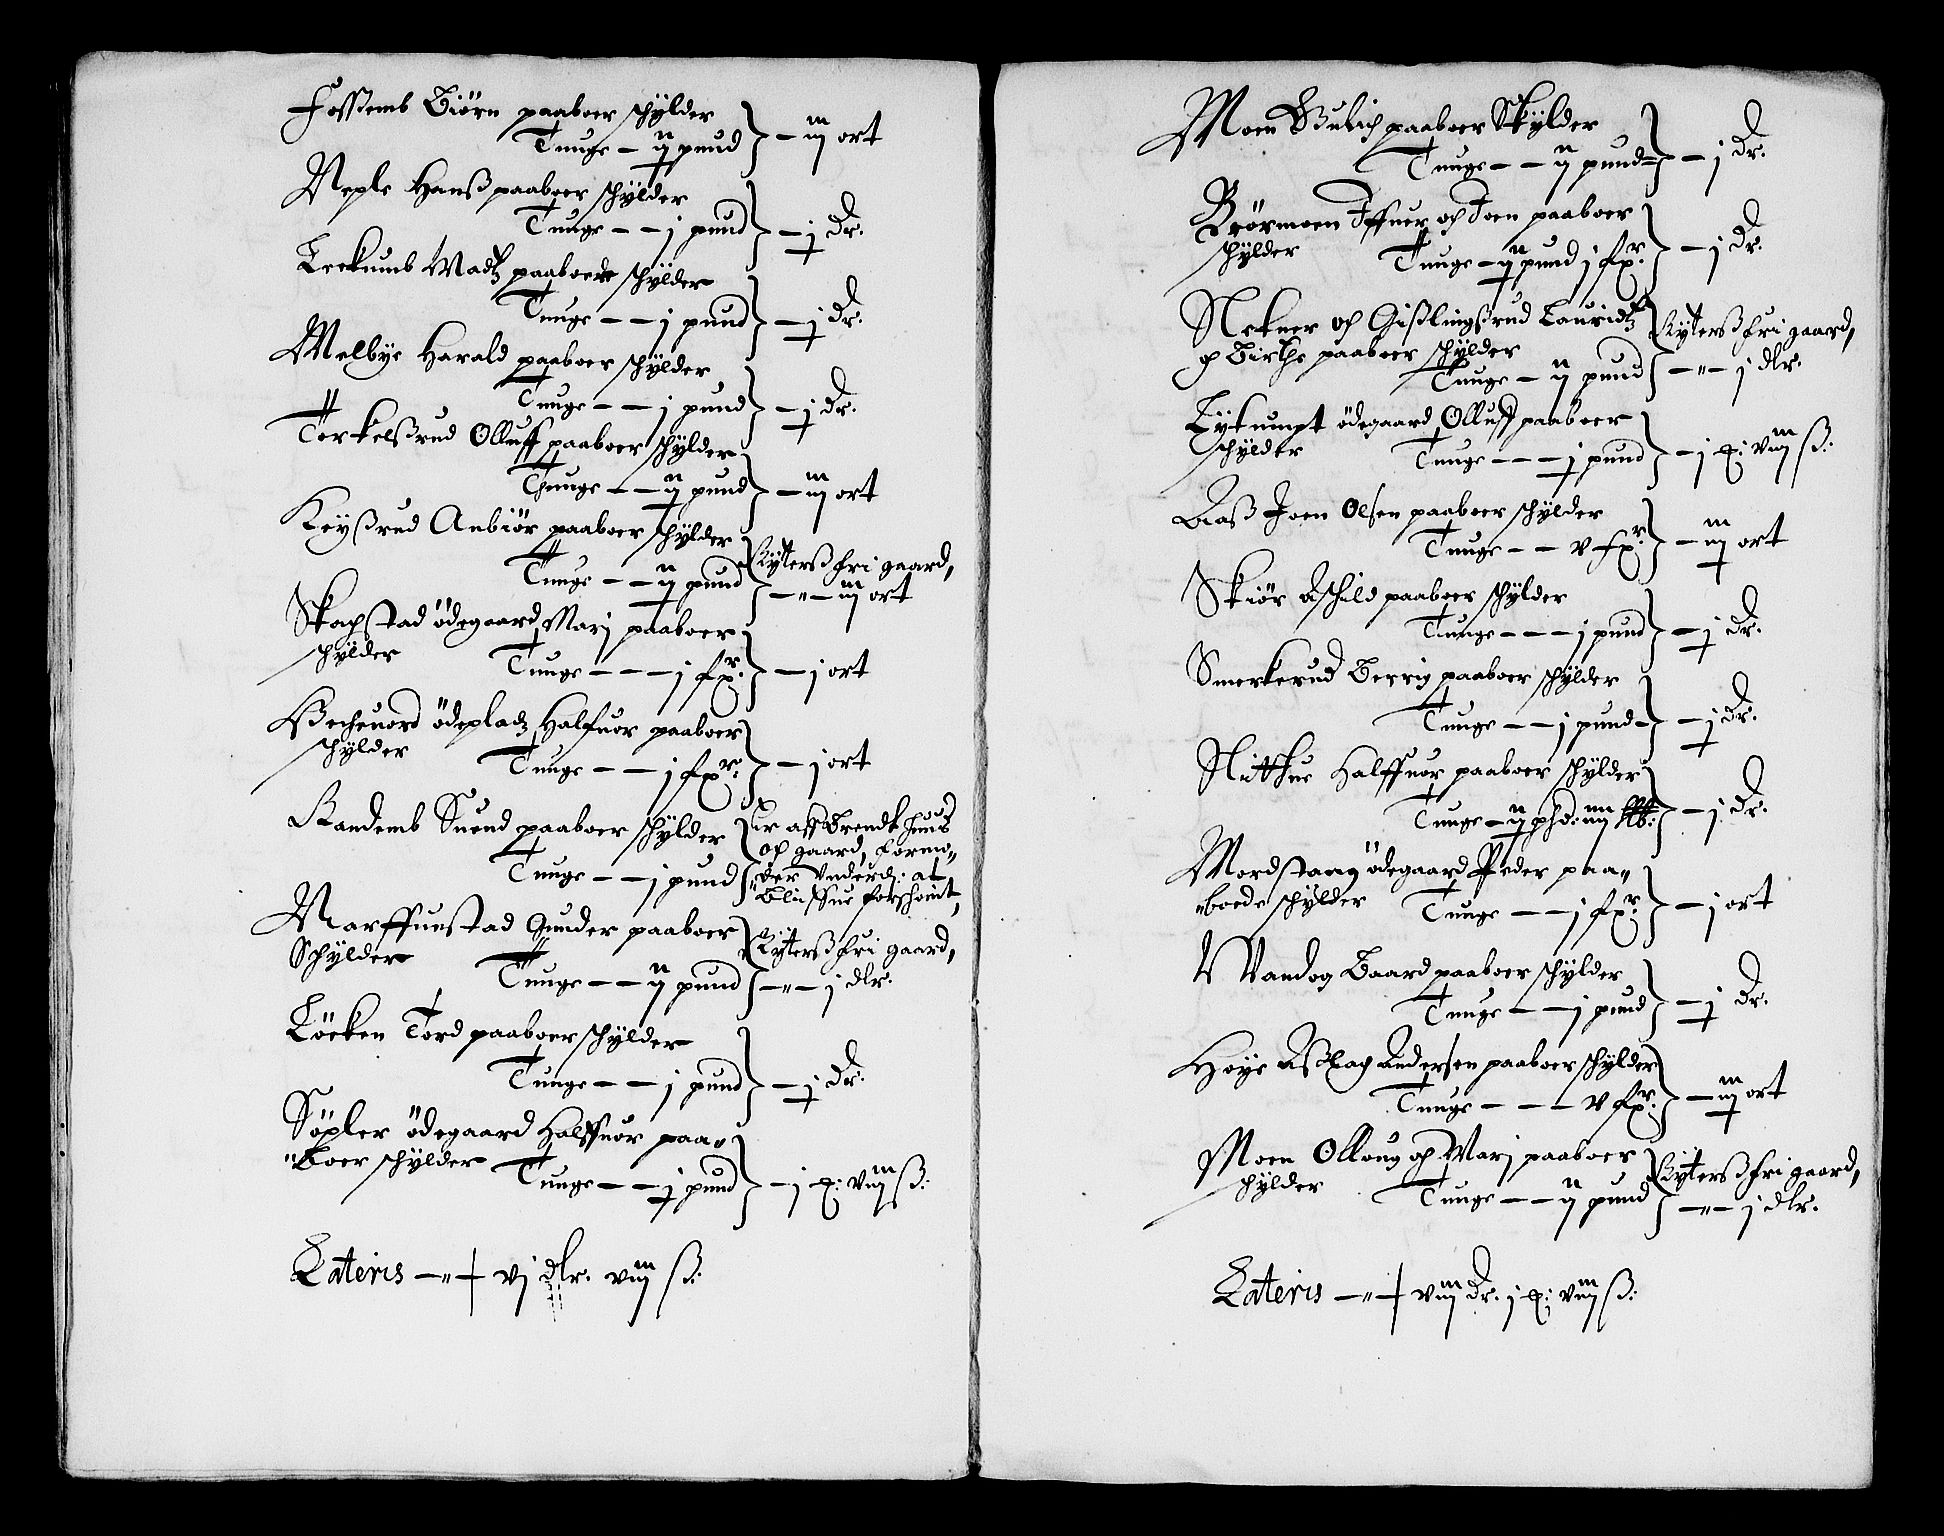 Fossemb Biörn paaboer schÿlder
Tunge — ij pund } — iij ort
Neple Hanß paaboer schÿlder
Tunge — — j pund } — j Dr.
Leekumb Madtz paaboede schÿlder
Tunge — — j pund } — j Dr.
Melbye Harald paaboer schÿlder
Tunge — — j pund } — j Dr.
Torkelßrud Olluff paaboer schÿlder
Thunge — — ij pund } — iij ort
Keÿßrud Anbiör paaboer schÿlder
Tunge — — ij pund } Rÿterß fri gaard,
— „ — iij ort
Skachstad ödegaard Marj paaboer
schÿlder Tunge — — — j fxr. } — j ort
Becheuord ödepladtz Halfuor paaboer
schÿlder Tunge — — j fxr. } — j ort
Randemb Suend paaboer schÿlder
Tunge — — j pund } Er aff Brendt huus
och gaard, formo„
„der Underd: at
bliffue forschoint,
Marffuestad Gunder paaboer
Schÿlder Tunge — — ij pund } Rÿterß fri gaard,
— „ — j dlr.
Löcken Tord paaboer schÿlder
Tunge — — j pund } — j Dr.
Söpler ödegaard Halffuor paa„
„Boer schÿlder Tunge — — j pund } — j x: viij ß:
Lateris — „ — vj dlr. viij ß:
Moen Gulich paaboer Skÿlder
Tunge — — ij pund } — j Dr.
Biörmoen Iffuer och Joen paaboer
schÿlder Tunge — ij pund j fxr. } — j Dr.
Nekner och Gißlingßrud Lauridtz
och Birthe paaboer schÿlder
Tunge — ij pund } Rÿterß fri gaard,
— „ — j dlr.
Lykumpt ödegaard Olluff paaboer
schÿlder Tunge — — — j pund } — j x: viij ß:
Aaß Joen Olsen paaboer schÿlder
Tunge — — v fxr. } — iij ort
Skiör Aschild paaboer schÿlder
Tunge — — — j pund } — j Dr.
Smerkerud Berrig paaboer schÿlder
Tunge — — j pund } — j Dr.
Nitthue Halffuor paaboer schÿlder
Tunge — ij phd: iiij } — j Dr.
Mordstaag ödegaard Peder paa„
„boede schÿlder Tunge — — j fxr. } — j ort
Wandog Baard paaboer schÿlder
Tunge — — j pund } — j Dr.
Höye Aßlag Andersen paaboer schÿlder
Tunge — — — v fxr. } — iij ort
Moen Olloug och Marj paaboer
schÿlder Tunge — — ij pund } Rÿterß fri gaard,
— „ — j dlr.
Lateris — „ — viij Dr. j x: viij ß: